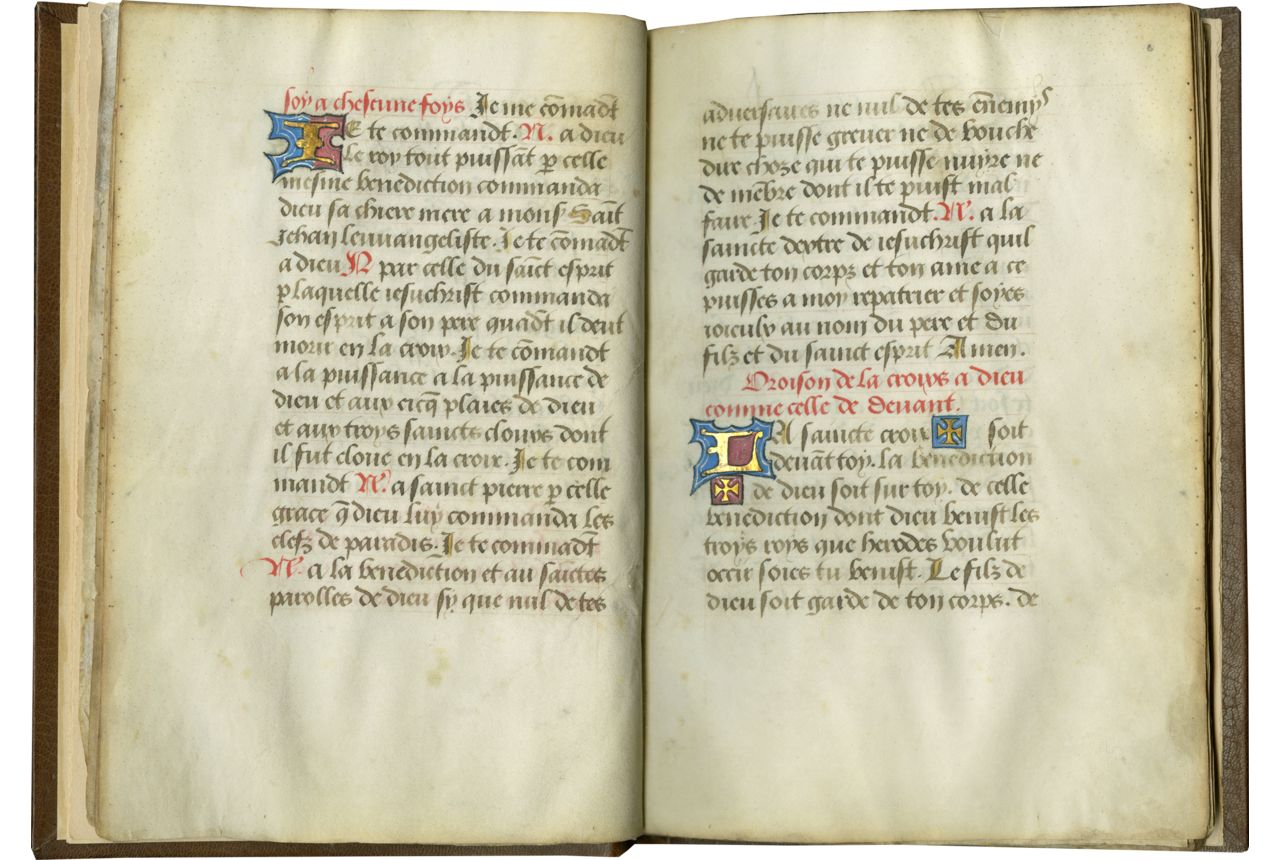 soy a chescune foys Je me cōmādt
JE te commandt. N. a dieu
Le roy tout puissāt p celle
mesme benediction commanda
dieu sa chiere mere a mons saīt
Jehan leuuangeliste. Je te cōmādt
a dieu N par celle du saīct esprit
p laquelle iesuchrist commanda
son esprit a son pere quādt il deut
morir en la croix. Je te cōmandt
a la puissance a la puissance de
dieu et aux cicq plaies de dieu
et aux troys saincts cloups dont
il fut cloue en la croix. Je te com
mandt N. a sainct pierre p celle
grace q̄ dieu luy commanda les
clefz de paradis. Je te commādt
N. a la benediction et au saīctes
parolles de dieu sy que nul de tes
aduersaires ne nul de tes ēnemys
ne te puisse greuer ne de bouche
dire choze qui te puisse nuyre ne
de mēbre dont il te puist mal
faire Je te commandt. N. a la
saincte dextre de iesuchrist quil
garde ton corps et ton ame a ce
puisses a moy repatrier et soyes
au nom du pere et du
filz et du sainct esprit Amen.
Oroison de la croys a dieu
comme celle de deuant.
LA saincte croix ✠ soit
deuāt toy. la benediction
✠ de dieu soit sur toy. de celle
benediction dont dieu benist les
troys roys que herodes voulut
occir soies tu benist. Le filz de
dieu soit garde de ton corps. de